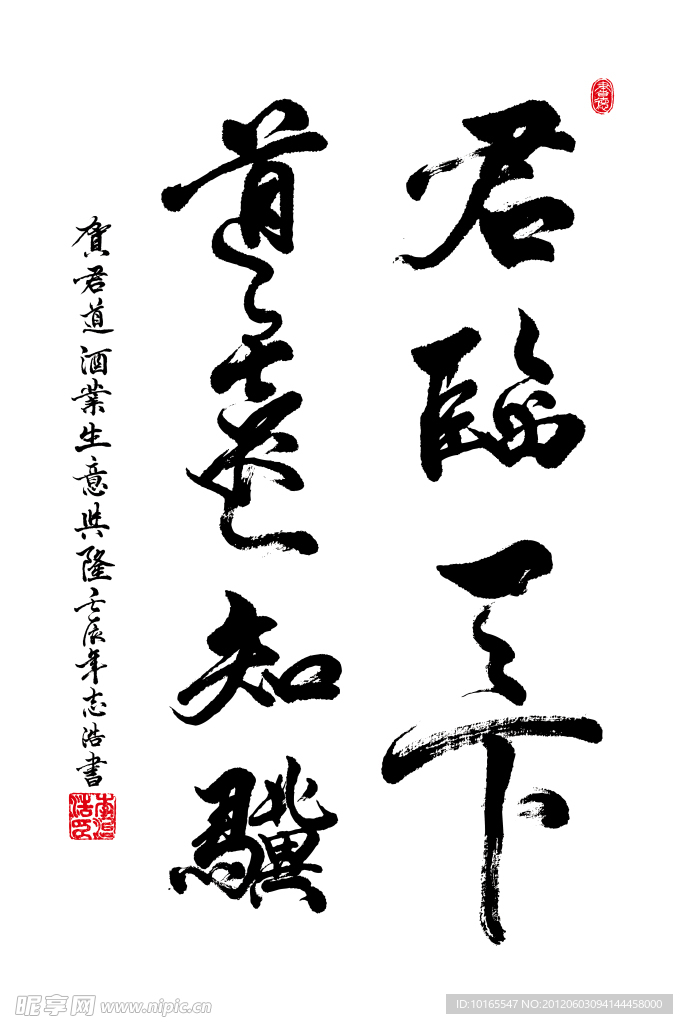 君臨天下
道遠知驥
賀君道酒業生意興隆壬辰年志浩書
昵享网 www.nipic.cn
ID:10165547 NO:20120603094144458000